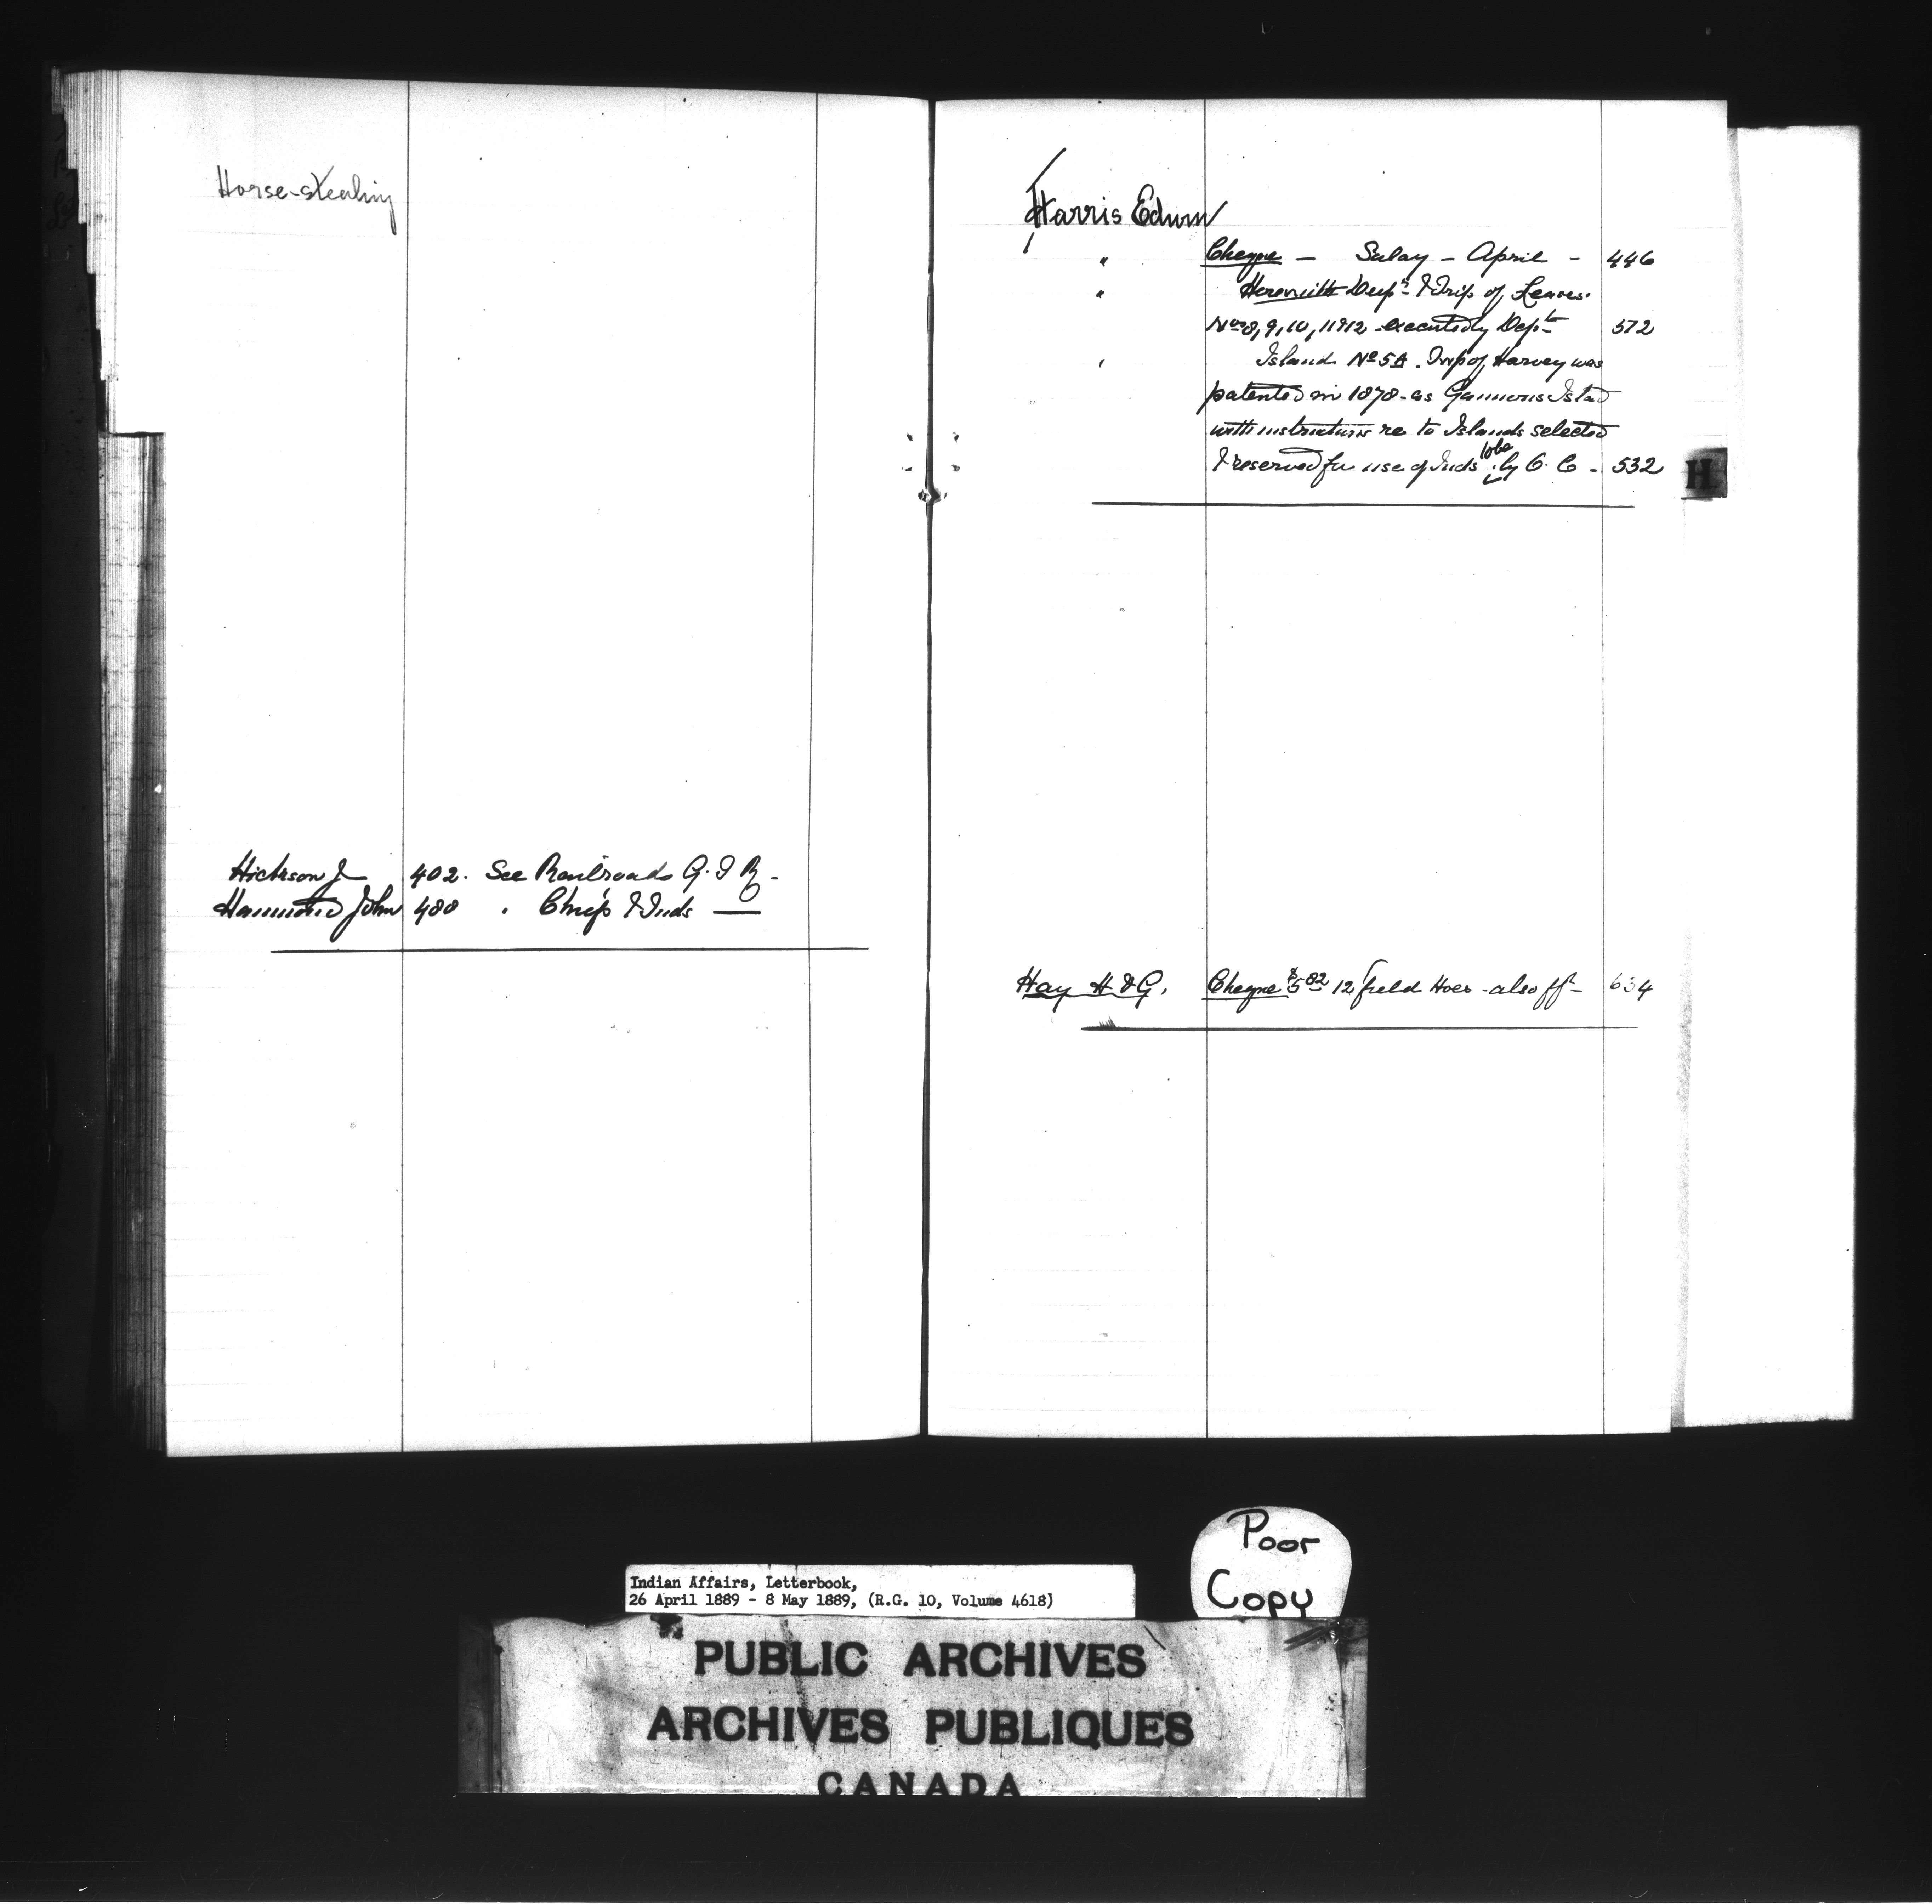 Horse-stealing
Hickson J 402. See Railroads G. T R -
Hammond John 488 " Chiefs & Inds —
Harris Edwin
" Cheque — Salay - April - 446
" Herewith Dup? & Trip of Leases
Nos 8, 9, 10, 11 & 12 executed by Dept 572
" Island No 5A. Twp of Harvey was
patented in 1878 - as Gannons Island
with instructions re to Islands selected
& reserved for use of Inds to be by C. C - 532
H
Hay H & G. Cheque $5 82 12 field Hoes - also 634
Poor
Copy
Indian Affairs, Letterbook,
26 April 1889 - 8 May 1889, (R.G. 10, Volume 4618)
PUBLIC ARCHIVES
ARCHIVES PUBLIQUES
CANADA